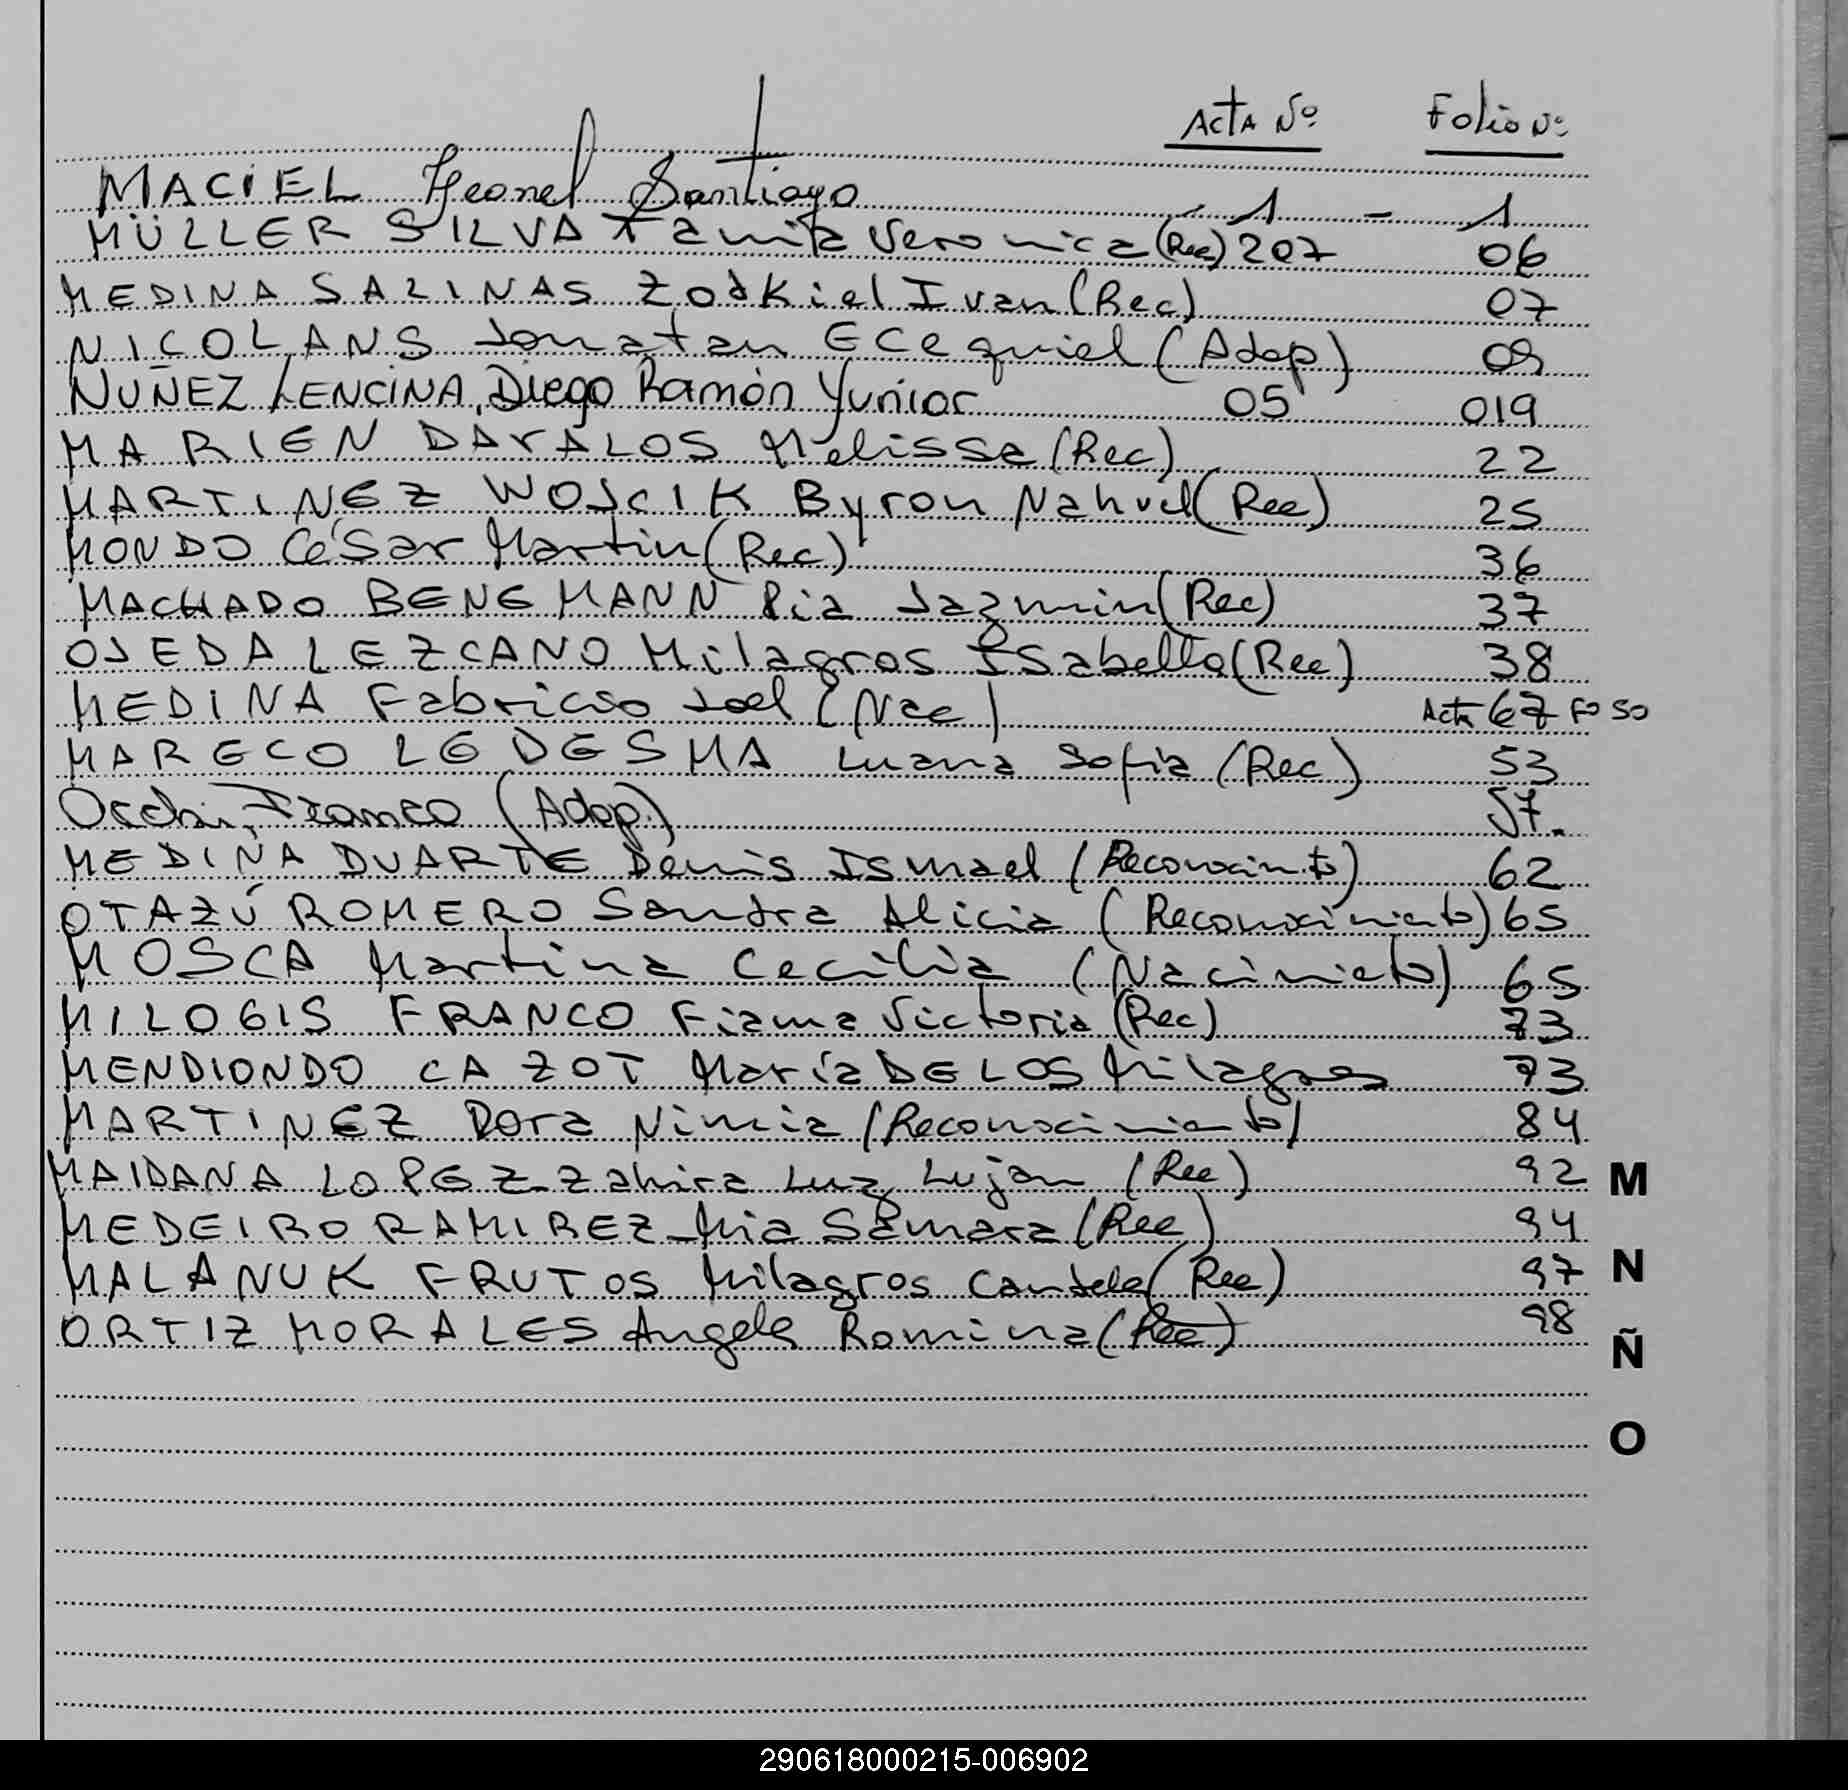 Acta Nº Folio Nº
MACIEL Leonel Santiago - 1 - 1
MÜLLER SILVA Tamita Veronica (Rec) 207 06
MEDINA SALINAS Zodkiel Ivan (Rec) 07
NICOLANS Jonatan ECequiel (Adop) 09
NUÑEZ LENCINA, Diego Ramón Yunior 05 019
MARIEN DAVALOS Melissa (Rec) 22
MARTINEZ WOJCIK Byron Nahuel (Rec) 25
MONDO César Martin (Rec) 36
MACHADO BENGMANN Pia Jazmin (Rec) 37
OJEDA LEZCANO Milagros Isabella (Rec) 38
MEDINA Fabricio Joel (Nac) Acta 67 Fº 50
MARECO LEDESMA Luana Sofia (Rec) 53
Occhi, Franco (Adop.) 57.
MEDINA DUARTE Denis Ismael (Reconocim.to) 62
OTAZÚ ROMERO Sandra Alicia (Reconocimiento) 65
MOSCA Martina Cecilia (Nacimieto) 65
MILOGIS FRANCO Fiama Victoria (Rec) 73
MENDIONDO CAZOT María DE LOS Milagros 73
MARTINEZ Dora Nimia (Reconocimiento) 84
MAIDANA LOPEZ Zahira Luz Lujan (Rec) 92
M
MEDEIRO RAMIREZ Mia Samara (Rec) 94
MALANUK FRUTOS Milagros Candela (Rec) 97
N
ORTIZ MORALES Angela Romina (Rec) 98
Ñ
O
290618000215-006902